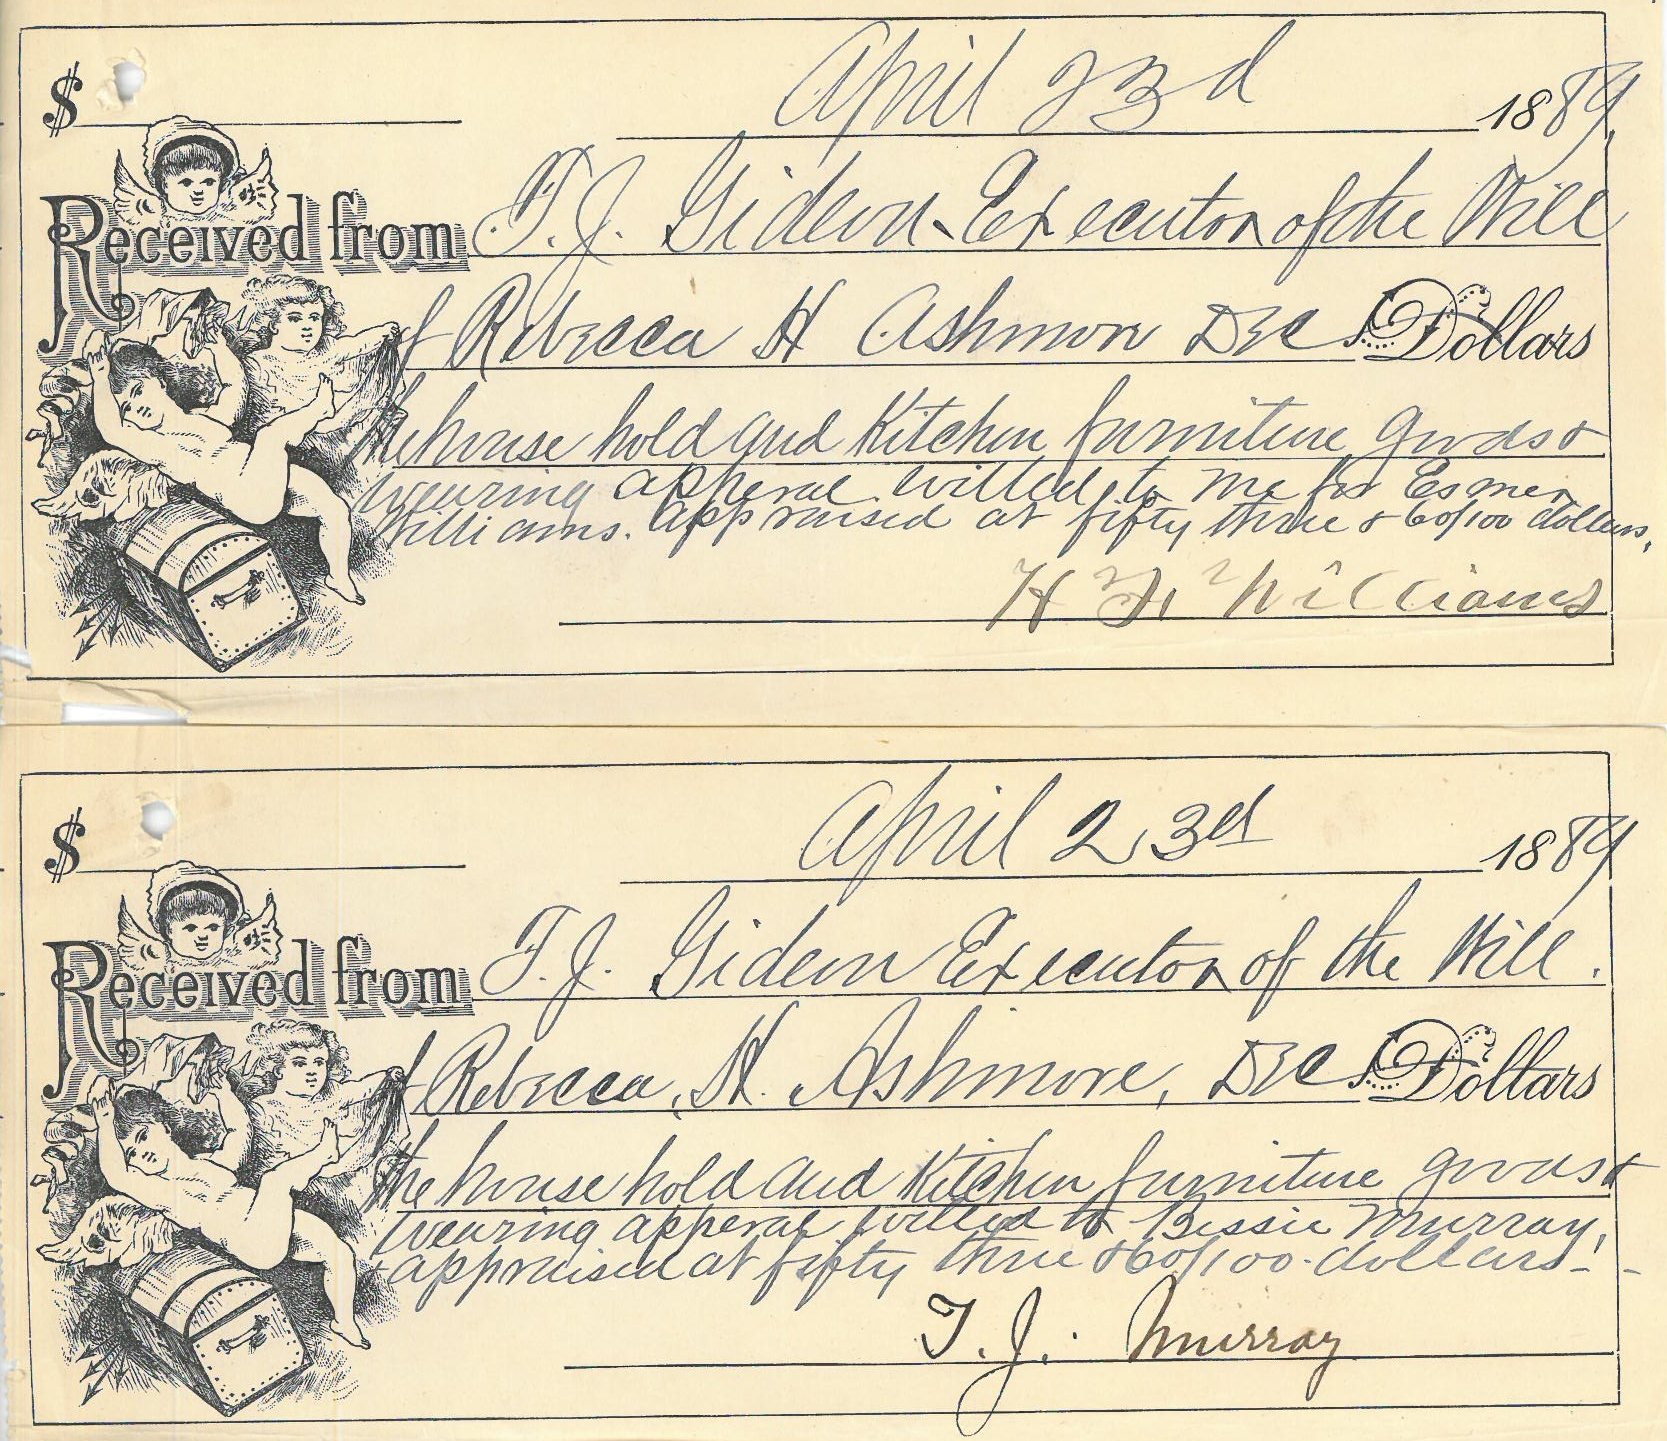 $
April 23d 1889,
Received from T. J. Gideon Executor of the Will
of Rebecca H Ashmore Dec Dollars
the house hold and Kitchen furniture goods &
wearing apperal willed to me for Esmer
Williams. appraised at fifty three & 60/100 dollars,
Williams
$
April 23ed 1889
Received from T. J. Gideon Executor of the Will.
of Rebecca, H. Ashmore, Dec Dollars
the house hold and Kitchen furniture goods &
wearing apperal willed to Bessie Murray,
& appraised at fifty three & 60/100 dollars--
T. J. Murray